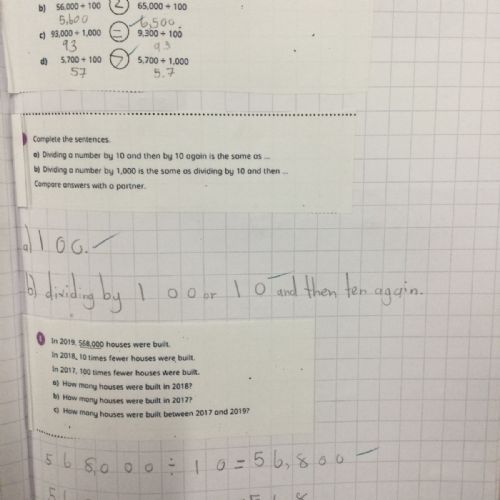 b) 56,000 ÷ 100 < 65,000 ÷ 100
5,600 6,500
c) 93,000 ÷ 1,000 = 9,300 ÷ 100
93 93
d) 5,700 ÷ 100 > 5,700 ÷ 1,000
57 5.7
Complete the sentences.
a) Dividing a number by 10 and then by 10 again is the same as ...
b) Dividing a number by 1,000 is the same as dividing by 10 and then ...
Compare answers with a partner.
a) 100.
b) dividing by 100 or 10 and then ten again.
In 2019, 568,000 houses were built.
In 2018, 10 times fewer houses were built.
In 2017, 100 times fewer houses were built.
a) How many houses were built in 2018?
b) How many houses were built in 2017?
c) How many houses were built between 2017 and 2019?
568,000 ÷ 10 = 56,800